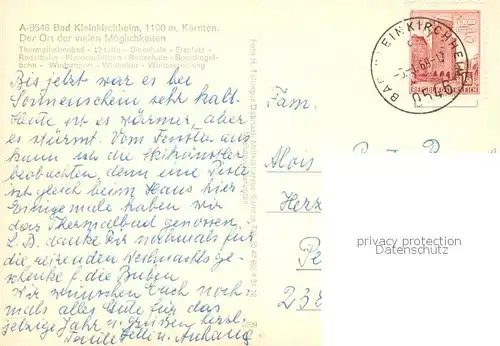 A-9546 Bad Kleinkirchheim, 1100 m, Kärnten.
Der Ort der vielen Möglichkeiten
Thermalhallenbad - 12 Lifte - Skischule - Eisplatz -
Rodelbahn - Pferdeschlitten - Reitschule -
bahn - Wintersport - Wildbäder - Wintersonnung
Bis jetzt war es bei
Sonnenschein sehr kalt.
Heute ist es wärmer, aber
es stürmt. Vom Fenster aus
kann ich die Skikünstler
beobachten, denn eine Piste
ist gleich beim Haus hier.
Einigemale haben wir
das Thermalbad genossen.
L.B. danke Dir nochmals für
die reizenden Weihnachtsge-
schenke f. die Buben
Wir wünschen Euch noch-
mals alles Gute für das
jetzige Jahr u. grüßen herzl.
Helli u. Anhang
Fam.
Alois
Herz
Pe
238
BAD KLEINKIRCHHEIM
9546
REPUBLIK ÖSTERREICH
property protection
Datenschutz